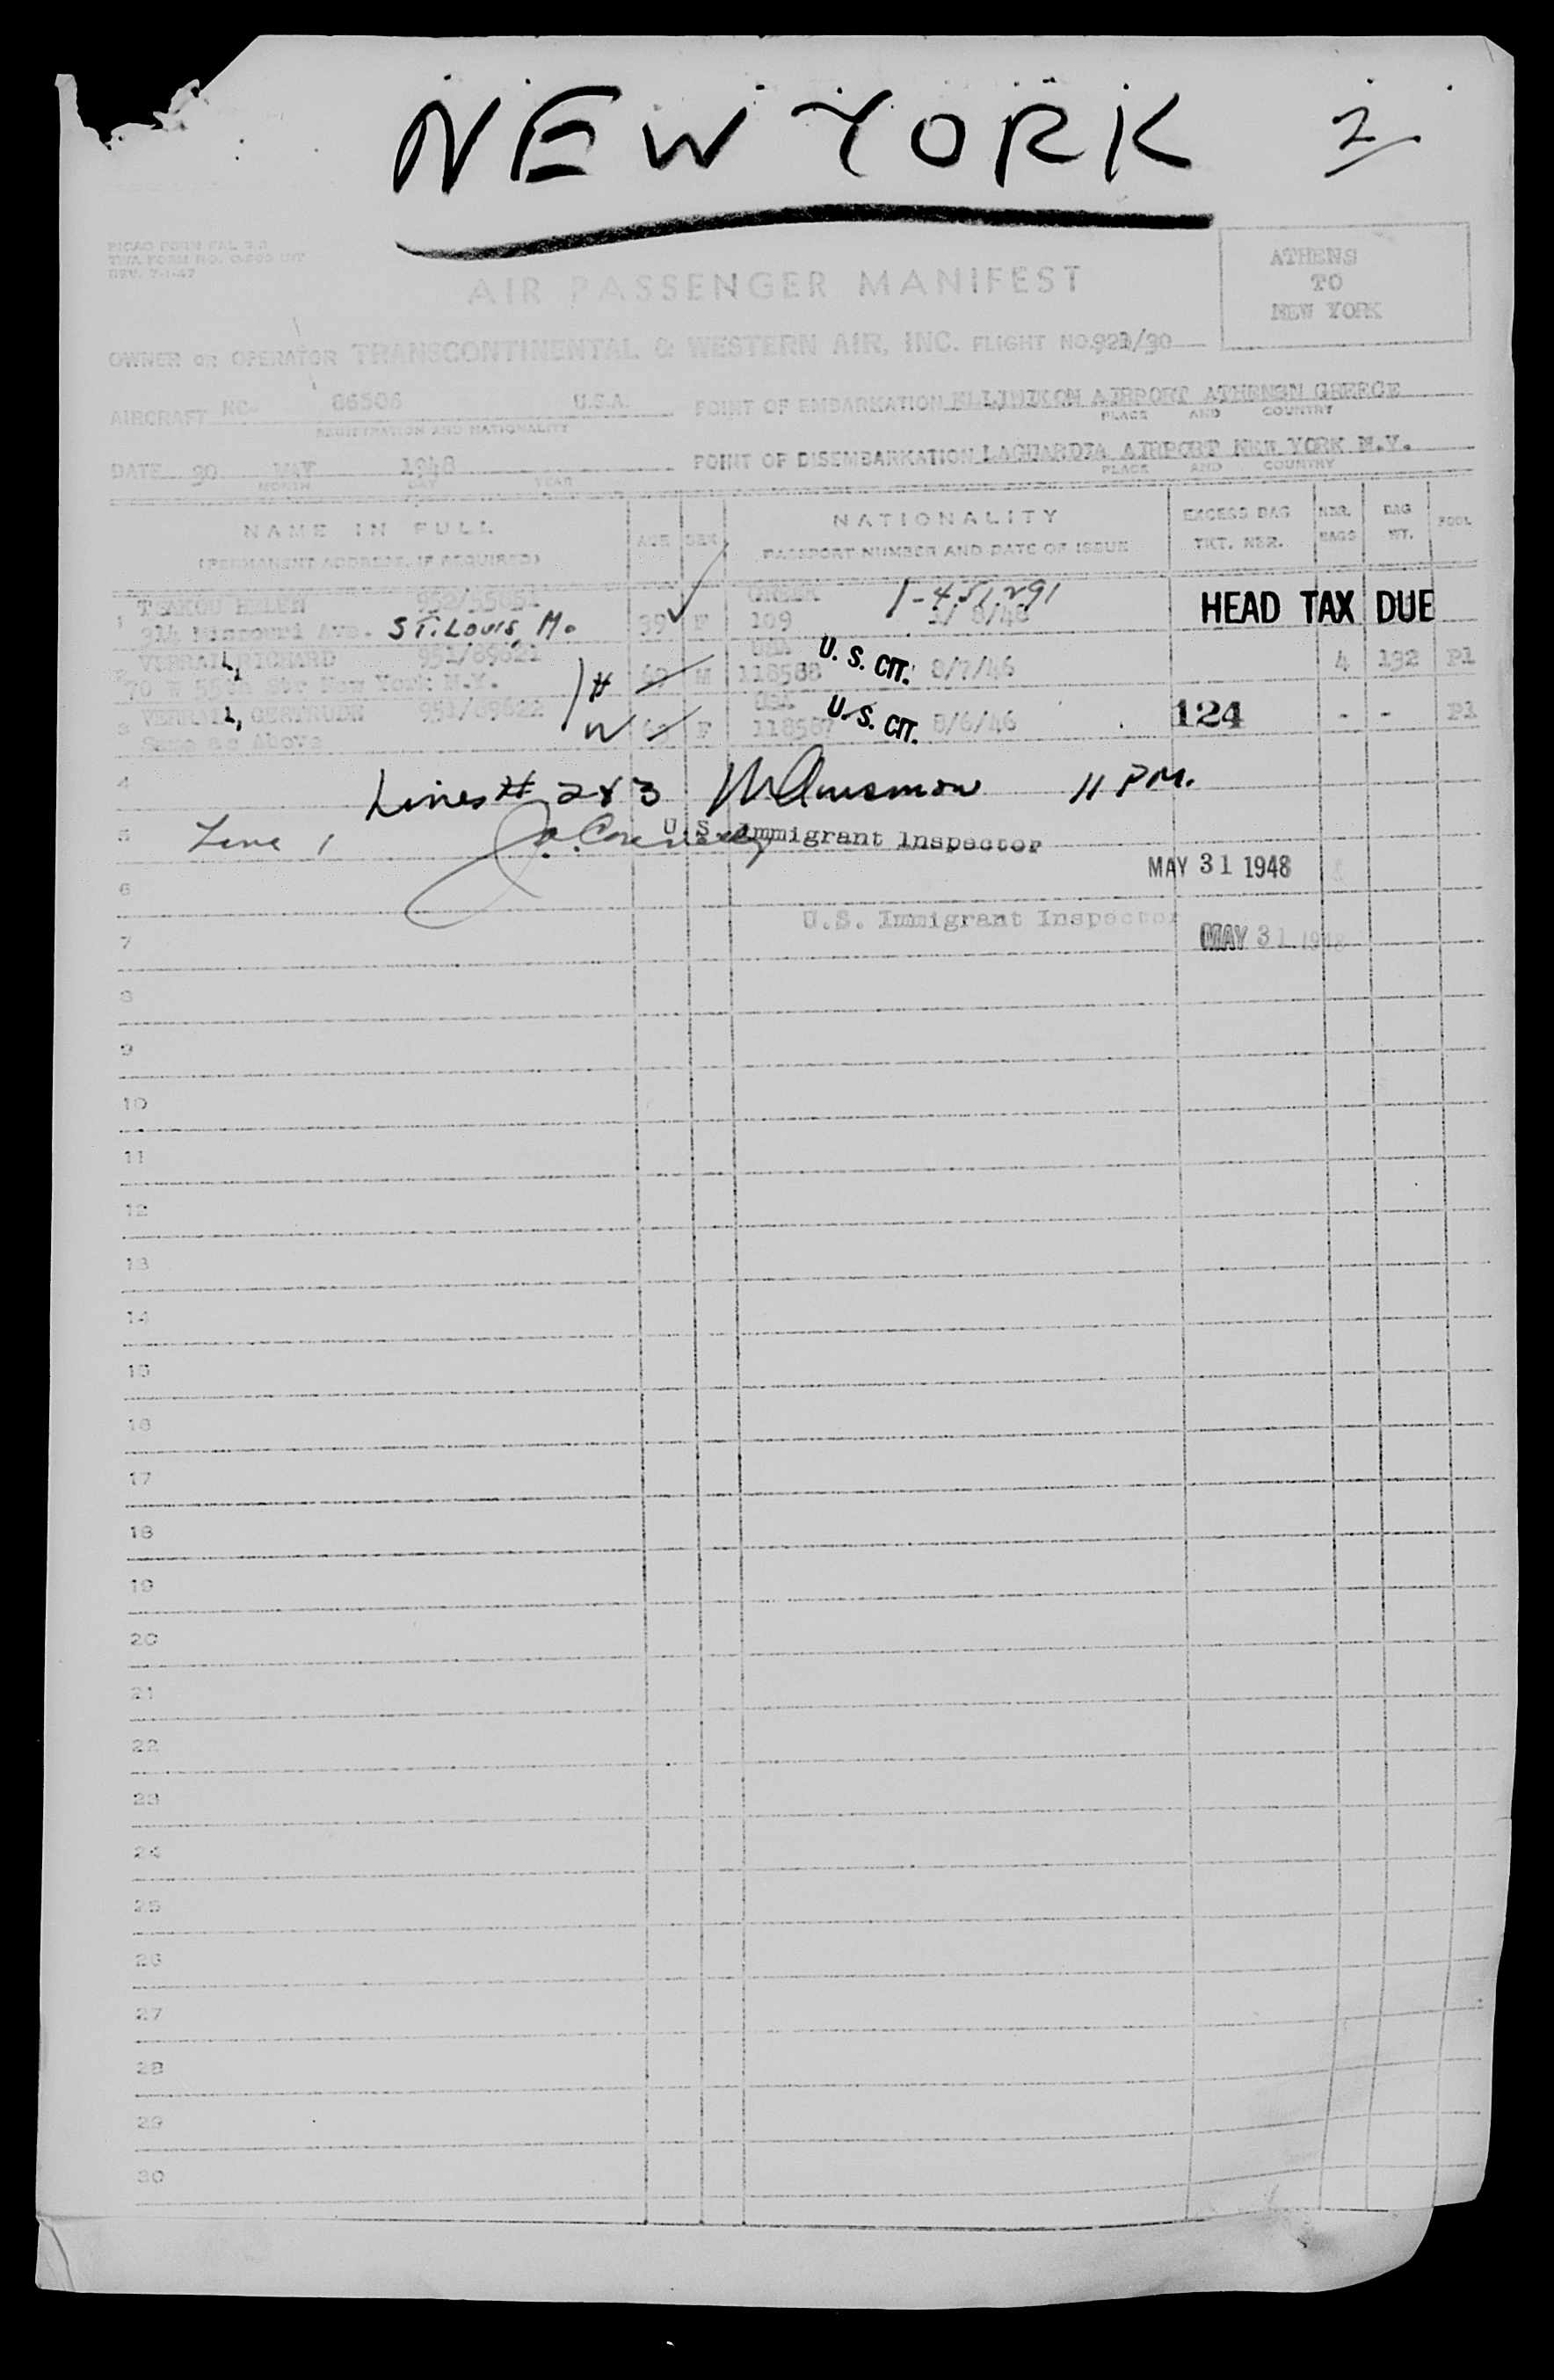 NEW YORK 2
PICAO FORM FAL 2.3
TWA FORM NO.
REV. 7-1-47
AIR PASSENGER MANIFEST
ATHENS
TO
NEW YORK
OWNER OR OPERATOR TRANSCONTINENTAL & WESTERN AIR, INC. FLIGHT NO. 923/30
AIRCRAFT NC- 86506 U.S.A. POINT OF EMBARKATION ELLINIKON AIRPORT ATHENSN GREECE
REGISTRATION AND NATIONALITY PLACE AND COUNTRY
DATE 30 MAY 1948 POINT OF DISEMBARKATION LAGUARDIA AIRPORT NEW YORK N.Y.
MONTH DAY YEAR PLACE AND COUNTRY
NAME IN FULL AGE SEX NATIONALITY EXCESS BAG NBR. BAG POOL
(PERMANENT ADDRESS, IF REQUIRED) PASSPORT NUMBER AND DATE OF ISSUE TKT. NBR. BAGS WT.
TSAKOU HELEN 952/55851 GREEK 1-451291
1 914 Missouri Ave. ST. LOUIS, Mo 39 F 109 HEAD TAX DUE
VERRALL, RICHARD 951/89621 USA U. S. CIT.
2 70 W 55th Str New York N.Y. H M 118568 8/7/46 4 132 Pl
VERRALL, GERTRUDE 951/89622 USA U. S. CIT. 124
3 Same as Above W F 118567 8/6/46 - - Pl
4 Lines # 2 & 3 11 PM.
5 Line 1 U.S. Immigrant Inspector
MAY 31 1948
6
U.S. Immigrant Inspector
7 MAY 31 1948
8
9
10
11
12
13
14
15
16
17
18
19
20
21
22
23
24
25
26
27
28
29
30